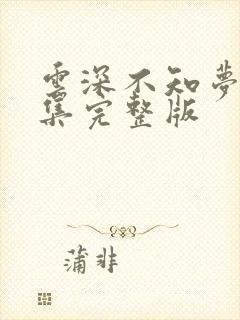 雲深不知夢
集完整版
蒲非